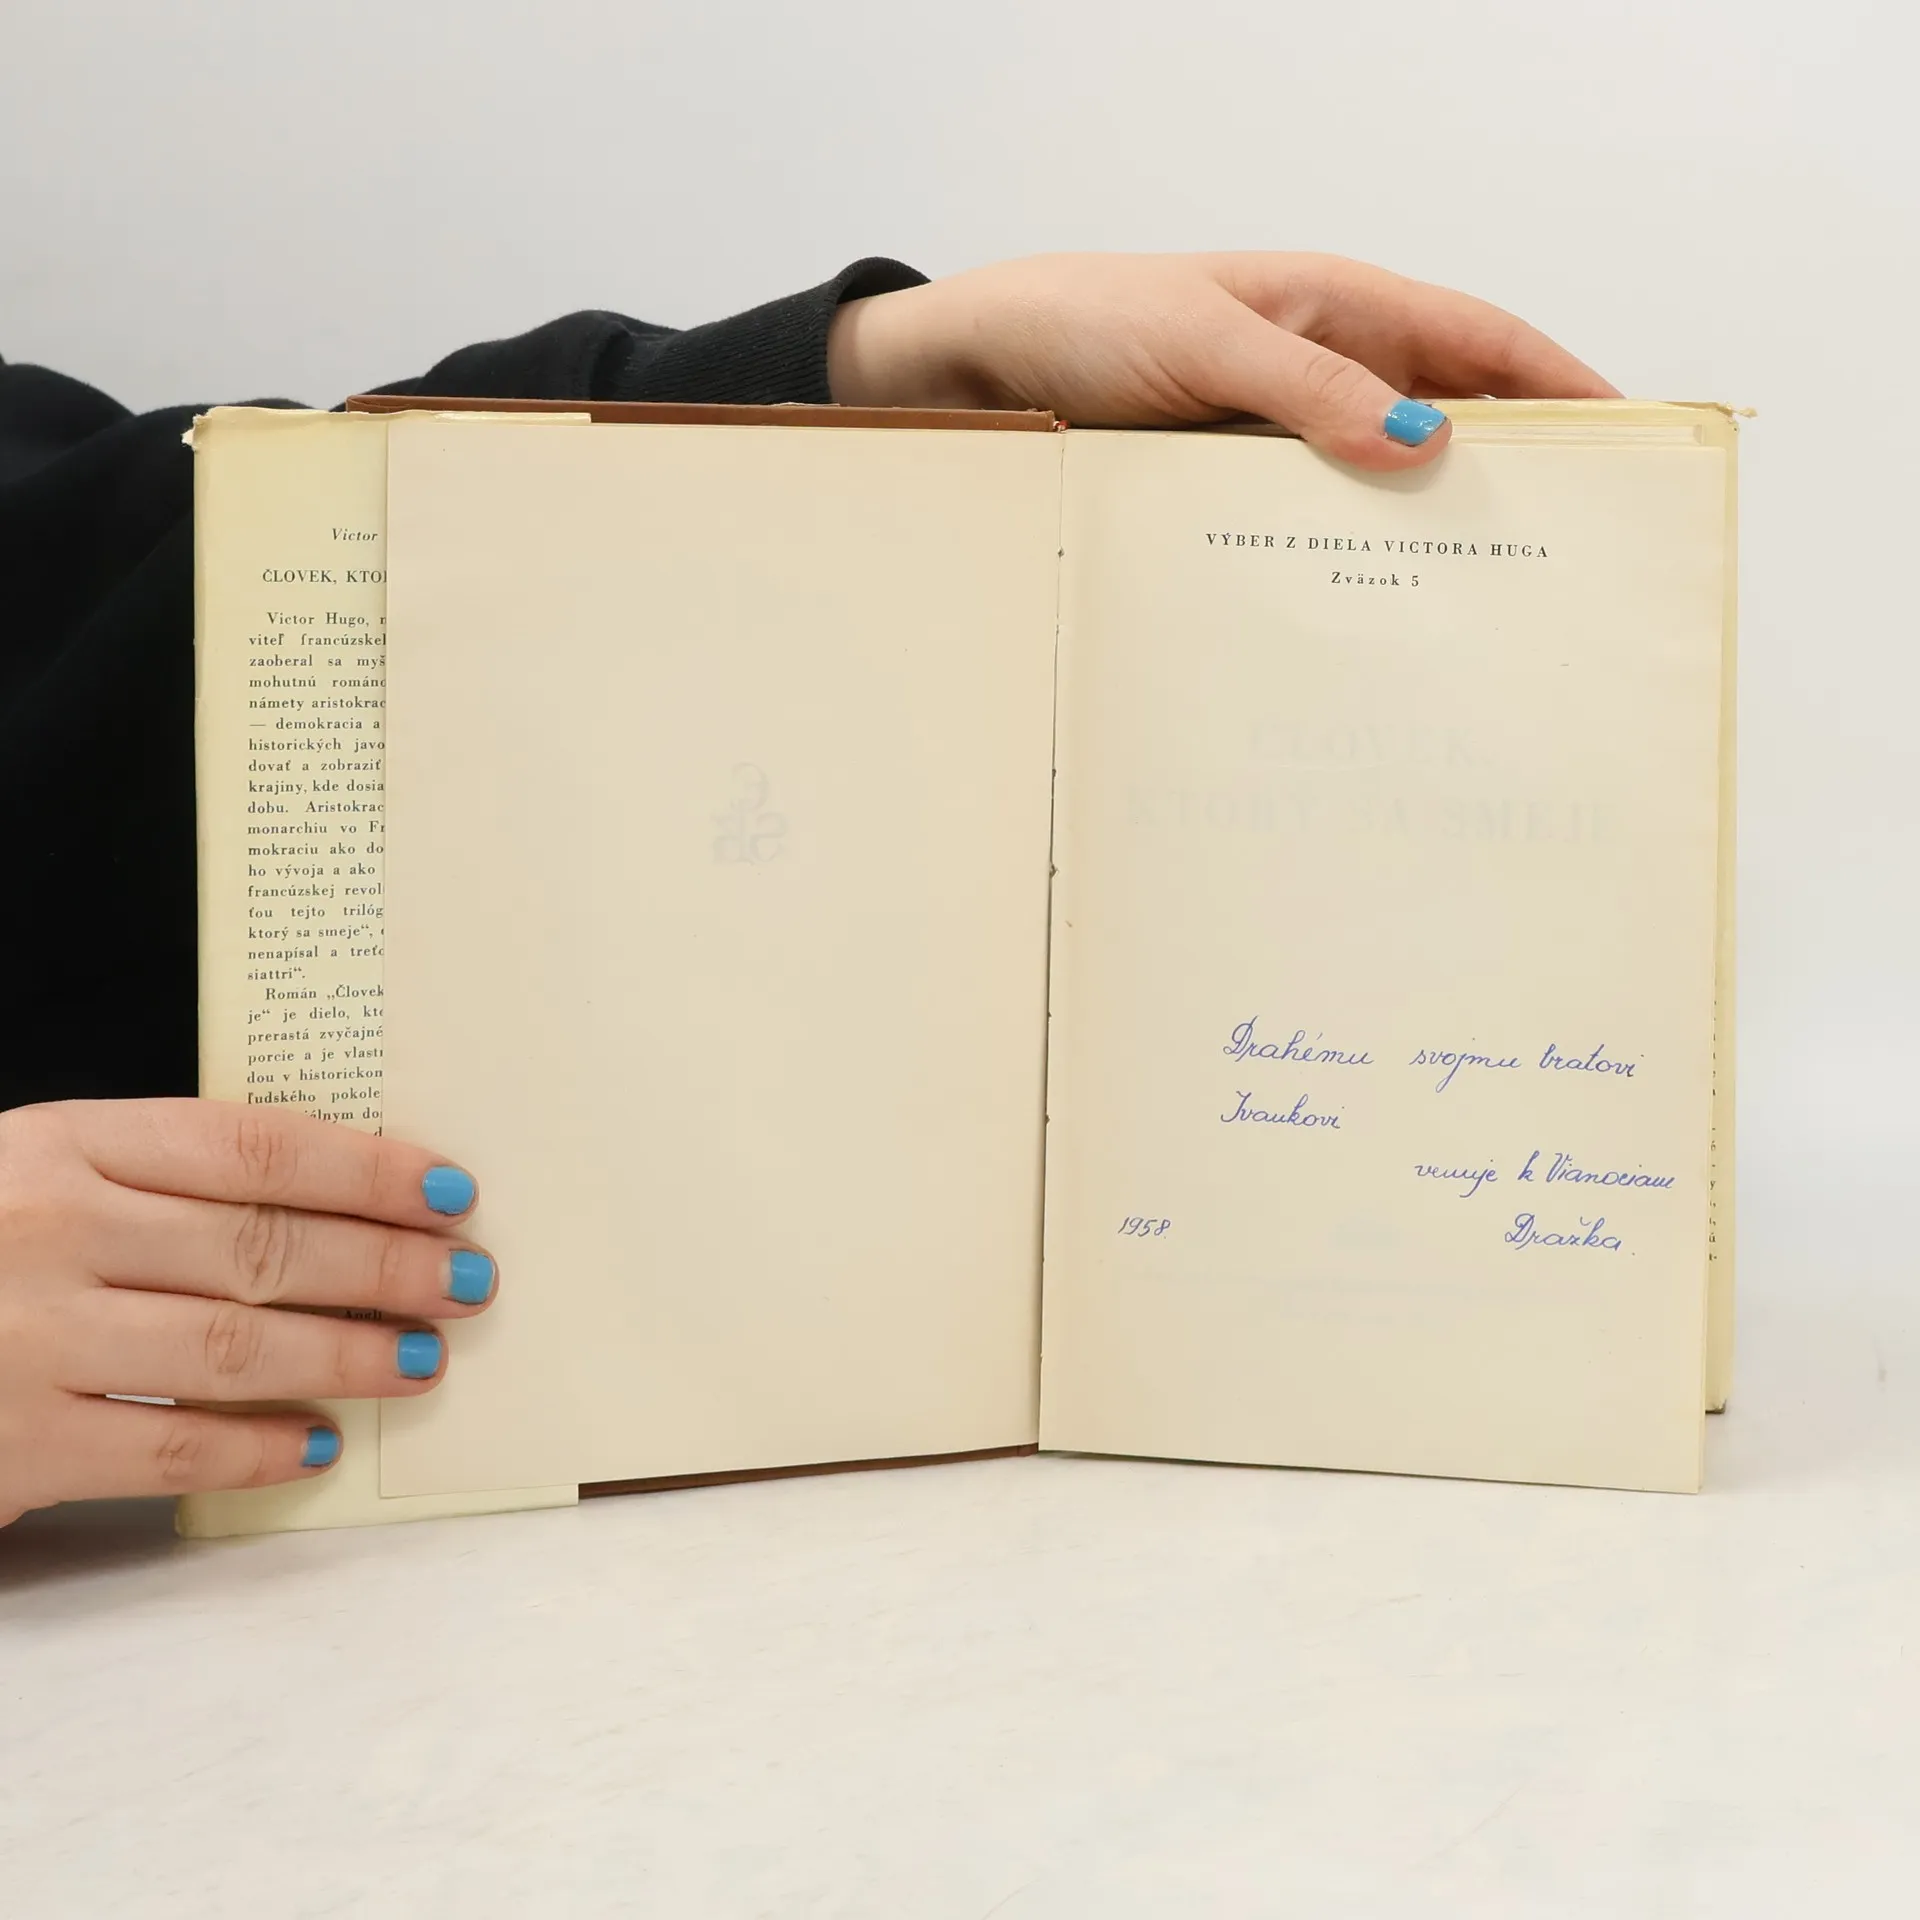 Victor
ČLOVEK, KTO
Victor Hugo,
viteľ francúzske
zaoberal sa myš
mohutnú románo
námety aristokrac
— demokracia a
historických javo
dovať a zobraziť
krajiny, kde dosia
dobu. Aristokrac
monarchiu vo Fr
mokraciu ako do
ho vývoja a ako
francúzskej revol
ťou tejto trilóg
ktorý sa smeje“,
nenapísal a treťo
siattri“.
Román „Človek
je“ je dielo, kto
prerastá zvyčajné
porcie a je vlast
dou v historickom
ľudského pokole
álnym do
Angli
VÝBER Z DIELA VICTORA HUGA
Zväzok 5
Drahému svojmu bratovi
Ivankovi
venuje k Vianociam
1958. Dražka.